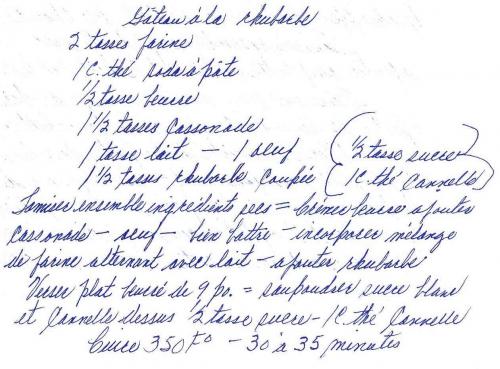 Gâteau à la rhubarbe
2 tasses farine
1 c. thé soda à pâte
1/2 tasse beurre
1 1/2 tasses cassonade
1 tasse lait — 1 oeuf (1/2 tasse sucre)
1 1/2 tasses rhubarbe coupée (1 c. thé cannelle)
Tamiser ensemble ingrédient secs = Crémer beurre ajouter
cassonade — oeuf — bien battre — incorporer mélange
de farine alternant avec lait — ajouter rhubarbe
Verser plat beurré de 9 po. = saupoudrer sucre blanc
et cannelle dessus 1/2 tasse sucre — 1 c. thé cannelle
Cuire 350 F° — 30 à 35 minutes